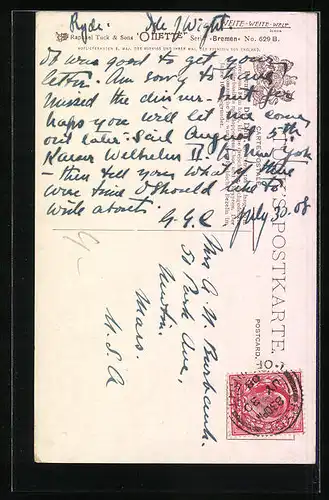 Ryde. Isle of Wight.
Raphael Tuck & Sons "OILETTE" Serie "Bremen" No. 629 B.
It was good to get your
letter. Am sorry to have
missed the dinner - but per
haps you will let me come
out later - Sail August 5th
Kaiser Wilhelm II. to New York
- then tell you what if there
were time I should like to
write about.
G.G.C. July 30. 08
Mrs A. W. Burbank.
50 Park Ave,
Newton.
Mass.
U.S.A
POSTKARTE.
POSTCARD.
CARTE POSTALE